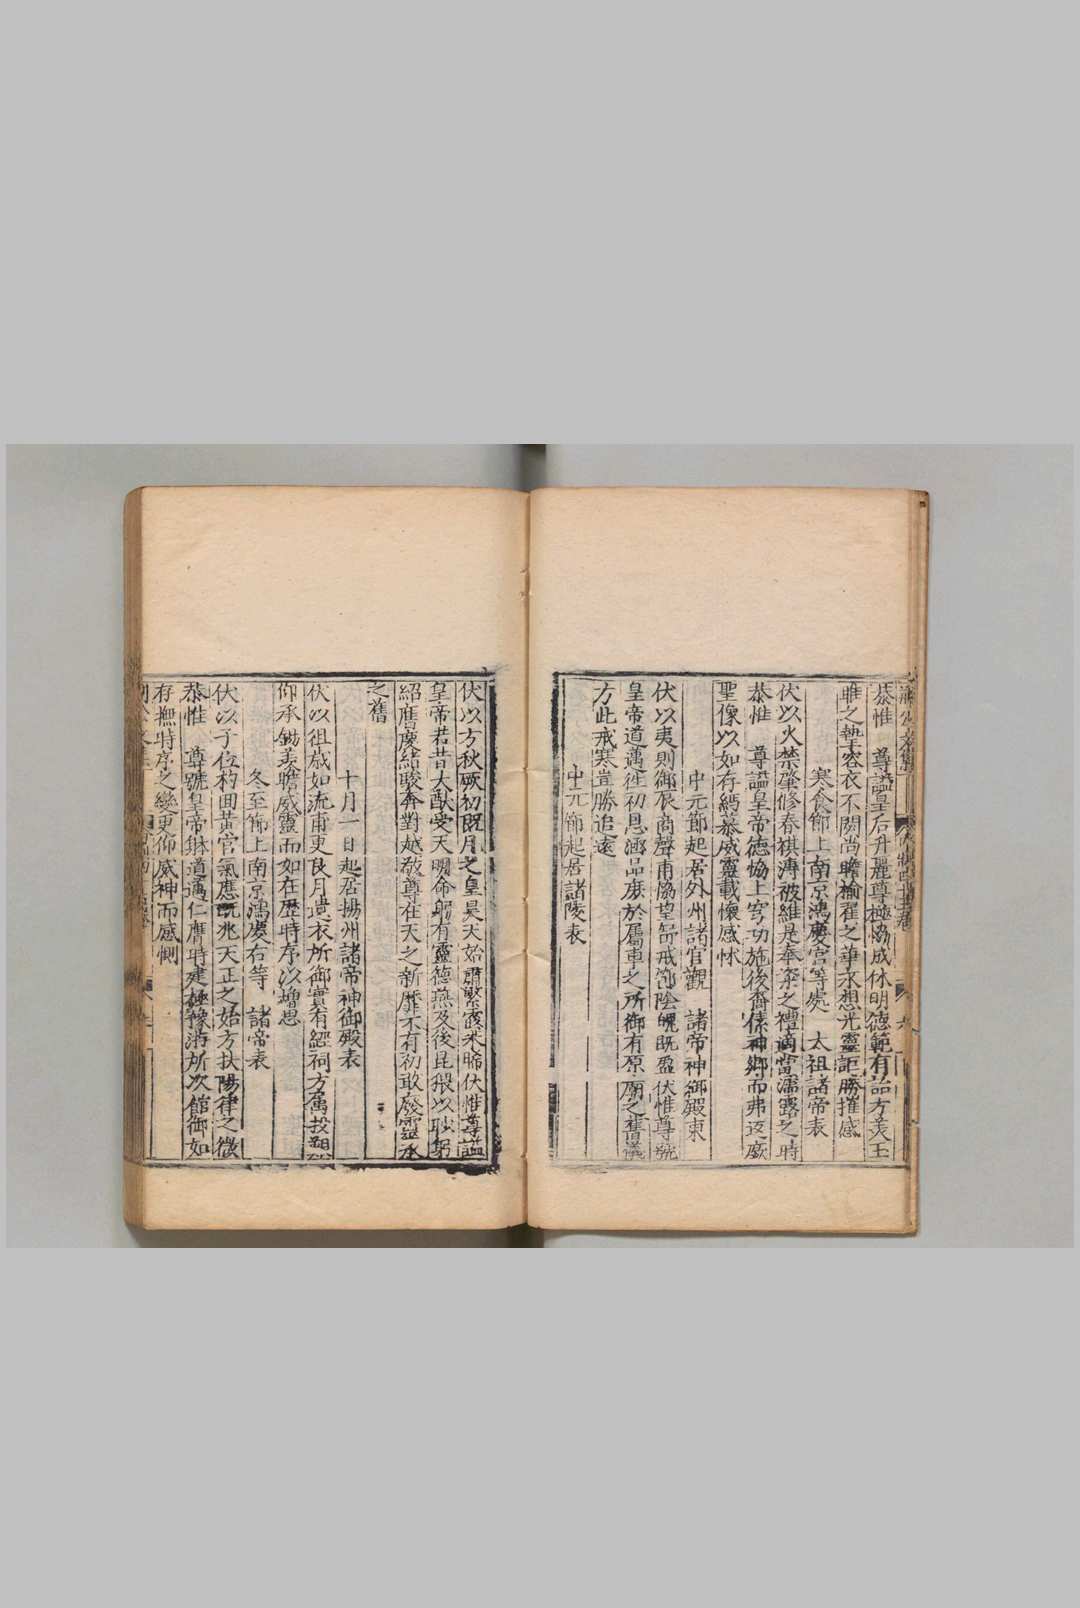 恭惟　尊謚皇后升麗尊極協成休明德範有詒方美王
雎之摯容衣不閟尚瞻褕翟之華永想光靈詎勝摧感
寒食節上南京鴻慶宮等處　太祖諸帝表
伏以火禁肇修春祺溥被維是奉粢之禮適當濡露之時
恭惟　尊謚皇帝德協上穹功施後裔俵神鄉而弗返嚴
聖像以如存緬慕威靈載懷感怵
中元節起居外州諸宮觀　諸帝神御殿表
伏以夷則御辰商聲甫協望舒戒節陰魄既盈伏惟尊號
皇帝道邁徃初恩涵品庶於屬車之所御有原廟之舊儀
方此戒寒豈勝追遠
中元節起居諸陵表
伏以方秋厥初既月之皇昊天始肅繁露未晞伏惟尊謚
皇帝若昔大猷受天明命躬有靈德燕及後昆猥以眇躬
紹膺慶緒駿奔對越敬尊在天之新靡不有初敢廢靈衣
之舊
十月一日起居揚州諸帝神御殿表
伏以徂歲如流甫更良月遺衣所御實有經祠方属投
仰承錫羨瞻威靈而如在歷時序以增思
冬至節上南京鴻慶宮等　諸帝表
伏以子位杓回黃宮氣應既兆天正之始方扶陽律之微
恭惟　尊號皇帝財道邁仁膺時建極豫游所次館御如
存撫時序之變更仰威神而感惻